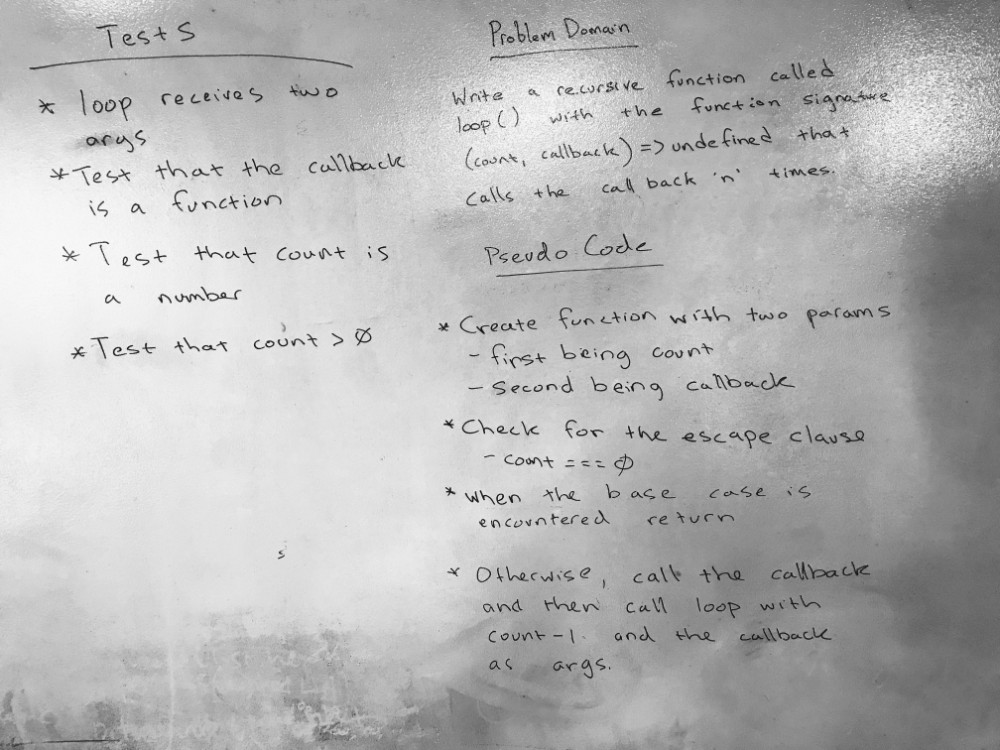 Tests
* loop receives two
args
* Test that the callback
is a function
* Test that count is
a number
* Test that count > Ø
Problem Domain
Write a recursive function called
loop() with the function signature
(count, callback) => undefined that
calls the call back 'n' times.
Pseudo Code
* Create function with two params
- first being count
- Second being callback
* Check for the escape clause
- count === Ø
* when the base case is
encountered return
* Otherwise, call the callback
and then call loop with
count-1 and the callback
as args.
s